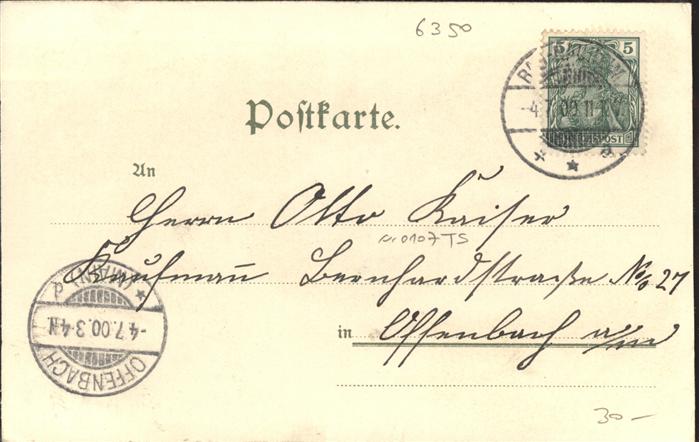 6350
5 5
-4.7.00.11-
REICHSPOST
Postkarte.
An
Herrn Otto Kaiser
a0107TS
Kaufmann Bernhardstraße No 27
in Offenbach a/m
(MAIN)
-4.7.00.3-4N.
OFFENBACH
30-